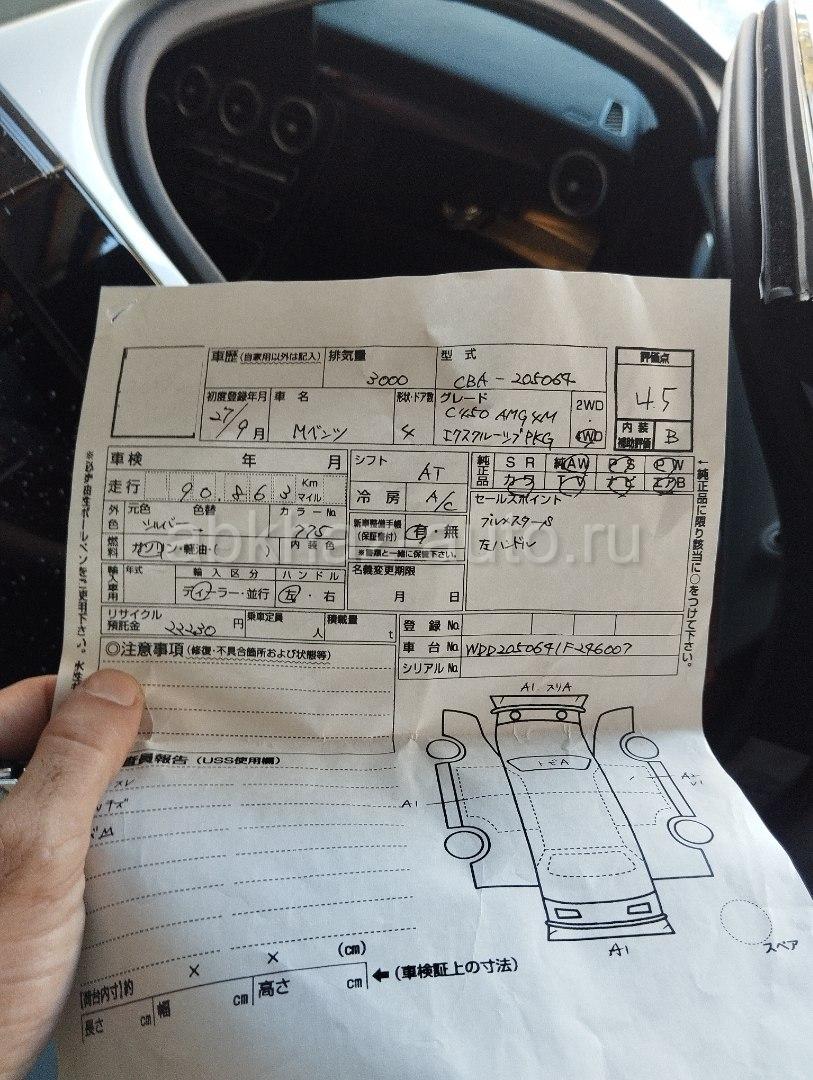 車歴(自家用以外は記入) 排気量 3000 型式 CBA-205064
評価点 4.5
初度登録年月 27/9月 車名 Mベンツ 形状・ドア数 4 グレード C450 AMG4M エクスクルーシブPKG 2WD 4WD
内装補助評価 B
車検 年 月 シフト AT 純正品 SR 純AW PS PW
走行 90,863 Km マイル 冷房 A/C カワ TV ナビ エアB
外色 元色 シルバー 色替 カラーNo. 775 内装色
新車整備手帳(保証書付) 有・無
※車票と一緒に保管下さい。
セールスポイント
ブルメスターS
左ハンドル
燃料 ガソリン・軽油・( )
輸入車用 年式 輸入区分 ディーラー・並行 ハンドル 左・右
名義変更期限 月 日
リサイクル預託金 22230円 乗車定員 人 積載量 t
登録No.
車台No. WDD2050641F246007
シリアルNo.
◎注意事項(修復・不具合箇所および状態等)
←純正品に限り該当に○をつけて下さい。
査員報告(USS使用欄)
A1 スリA
トビA
A1
A1
スペア
× × (cm)
←(車検証上の寸法)
【荷台内寸】約
長さ cm 幅 cm 高さ cm
abkhazauto.ru